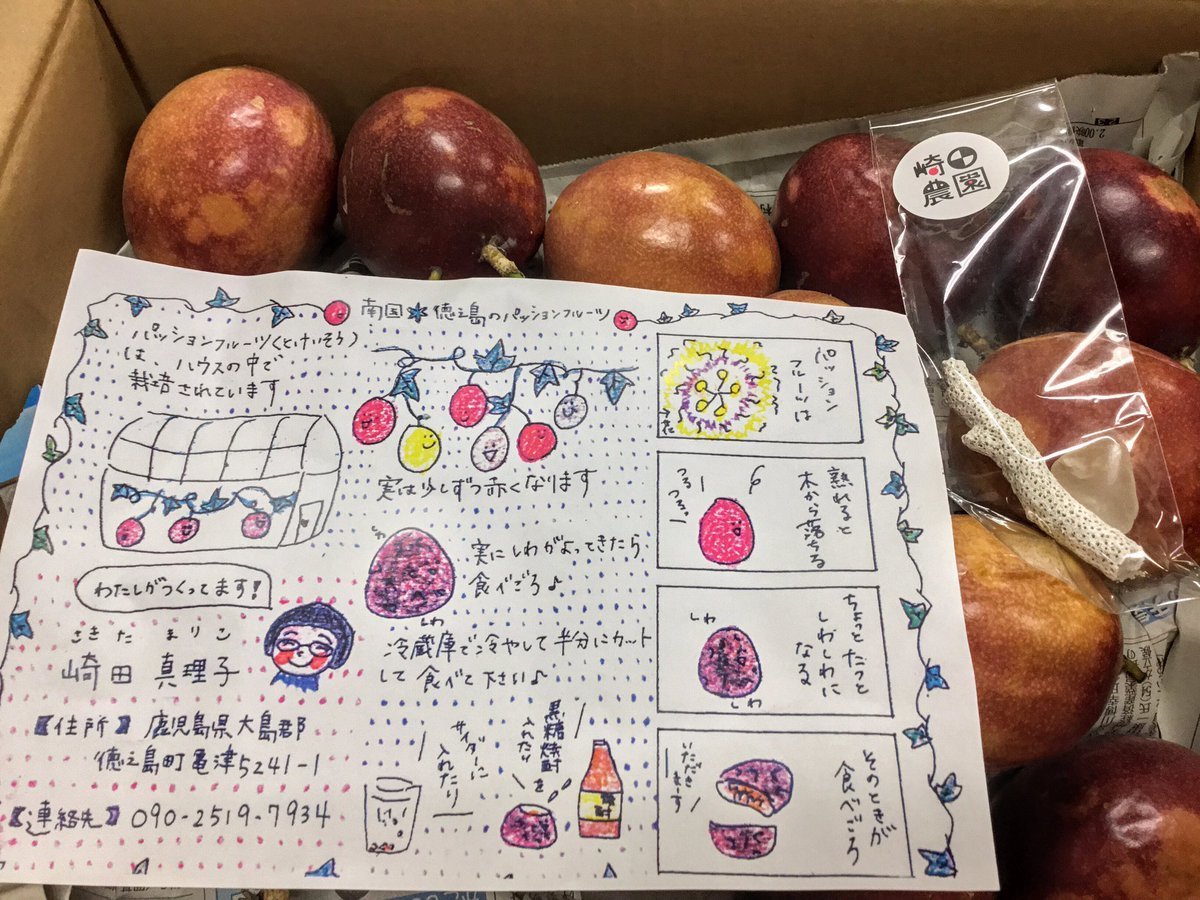 南国 徳之島のパッションフルーツ
パッションフルーツ(とけいそう)
は、ハウスの中で
栽培されています
わたしがつくってます!
さきた まりこ
崎田 真理子
【住所】鹿児島県大島郡
徳之島町亀津5241-1
【連絡先】090-2519-7934
実は少しずつ赤くなります
実にしわがよってきたら
食べごろ♪
しわ
冷蔵庫で冷やして半分にカット
して食べて下さい♪
サイダーに
入れたり
黒糖焼酎
入れたり
を
焼酎
パッション
フルーツは
花
熟れると
木から落ちる
つるー
つるー
ちょっとたつと
しわしわに
なる
しわ
しわ
そのときが
食べごろ
いただき
まーす
崎田
農園